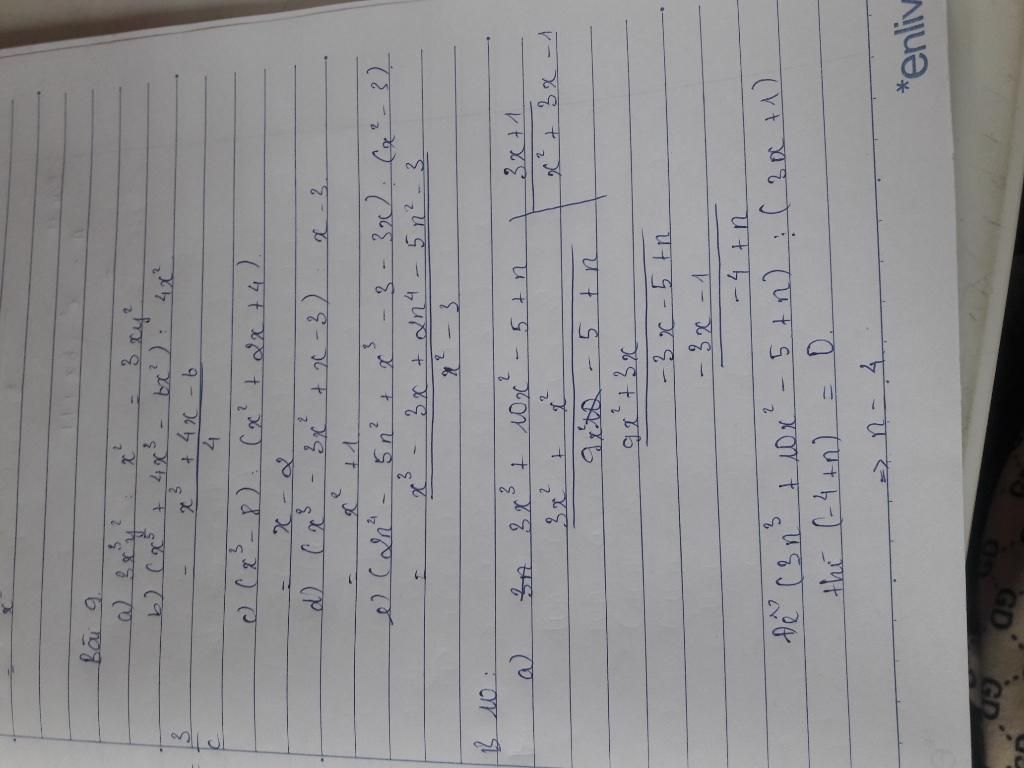 Bài 9
a) 3x³y² : x² = 3xy²
b) (x⁵ + 4x³ - 6x²) : 4x²
= x³ + 4x - 6
4
c) (x³ - 8) : (x² + 2x + 4)
= x - 2
d) (x³ - 3x² + x - 3) : x - 3
= x² + 1
e) (2n⁴ - 5n² + x³ - 3 - 3x) : (x² - 3)
= x³ - 3x + 2n⁴ - 5n² - 3
x² - 3
B 10:
a) 3x³ + 10x² - 5 + n 3x + 1
3x² + x² x² + 3x - 1
9x² - 5 + n
9x² + 3x
- 3x - 5 + n
- 3x - 1
- 4 + n
Để (3n³ + 10x² - 5 + n) : (3x + 1)
thì (-4 + n) = 0
=> n = 4
*enliv
GD
GD